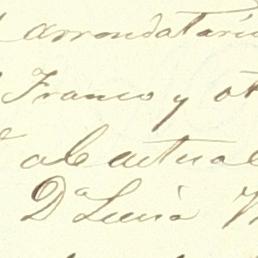 arrendatario
Franco y ot
al actual
Dª Lucia